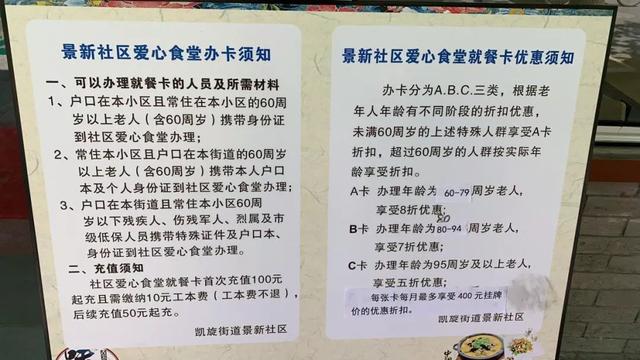 景新社区爱心食堂办卡须知
一、可以办理就餐卡的人员及所需材料
1、户口在本小区且常住在本小区的60周
岁以上老人（含60周岁）携带身份证
到社区爱心食堂办理；
2、常住本小区且户口在本街道的60周岁
以上老人（含60周岁）携带本人户口
本及个人身份证到社区爱心食堂办理；
3、户口在本街道且常住本小区60周
岁以下残疾人、伤残军人、烈属及市
级低保人员携带特殊证件及户口本、
身份证到社区爱心食堂办理。
二、充值须知
社区爱心食堂就餐卡首次充值100元
起充且需缴纳10元工本费（工本费不退），
后续充值50元起充。
凯旋街道景新社区
景新社区爱心食堂就餐卡优惠须知
办卡分为A.B.C.三类，根据老
年人年龄有不同阶段的折扣优惠，
未满60周岁的上述特殊人群享受A卡
折扣，超过60周岁的人群按实际年
龄享受折扣。
A卡 办理年龄为 60-79 周岁老人，
享受8折优惠；
80
B卡 办理年龄为 80-94 周岁老人，
享受7折优惠；
C卡 办理年龄为95周岁及以上老人，
享受五折优惠；
每张卡每月最多享受 400 元挂牌
价的优惠折扣。
凯旋街道景新社区